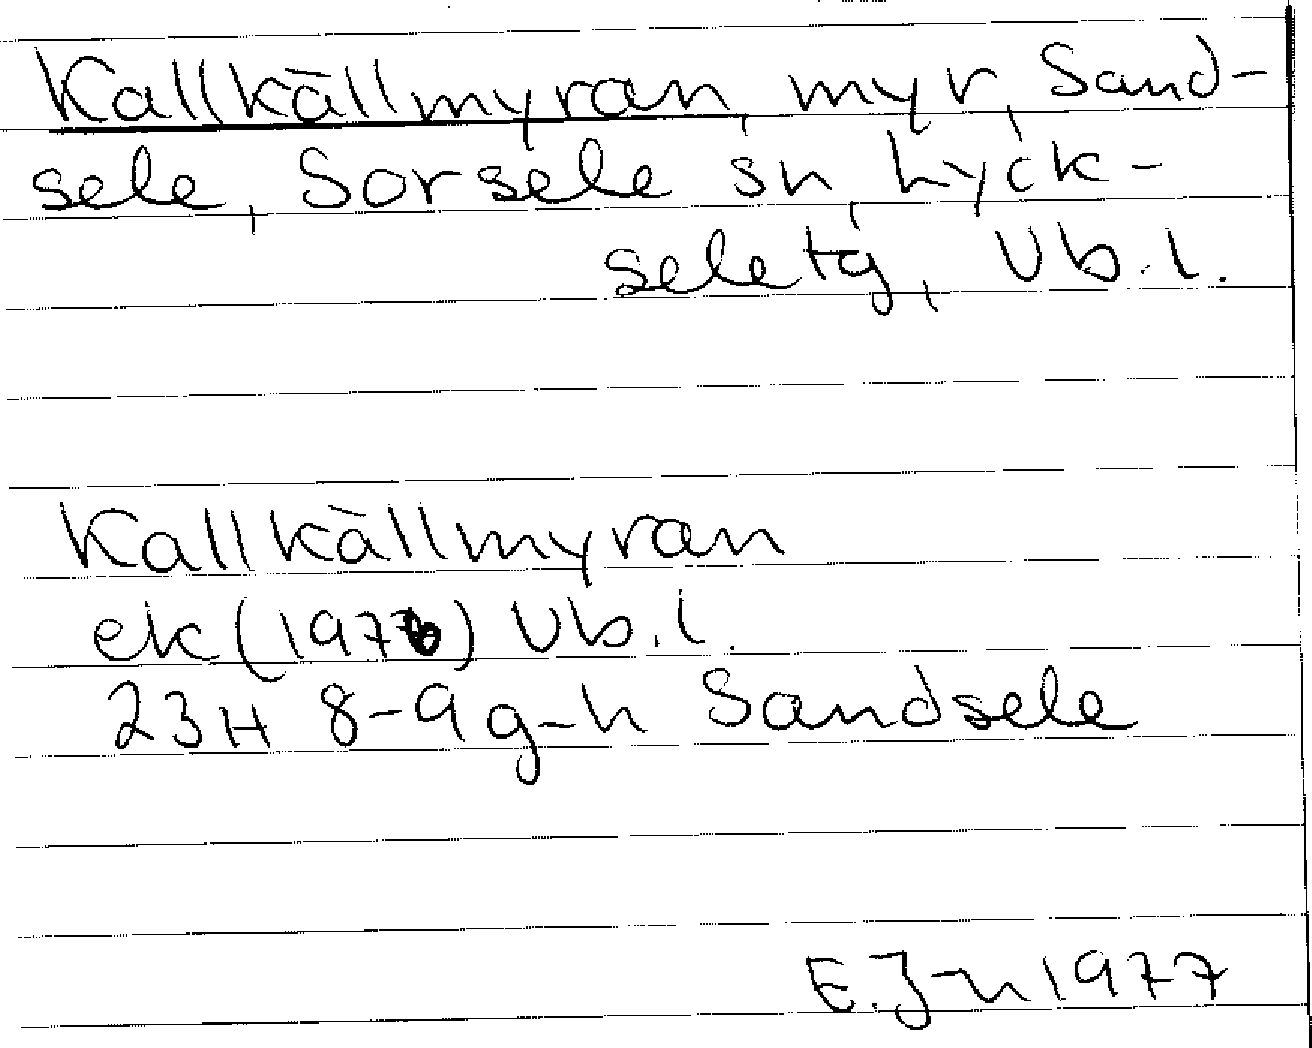 Kallkällmyran, myr, Sand-
sele, Sorsele sn, Lyck-
sele tg, Vb.l.
Kallkällmyran
ek (1976) Vb.l.
23H 8-9 g-h Sandsele
E.J-n 1977